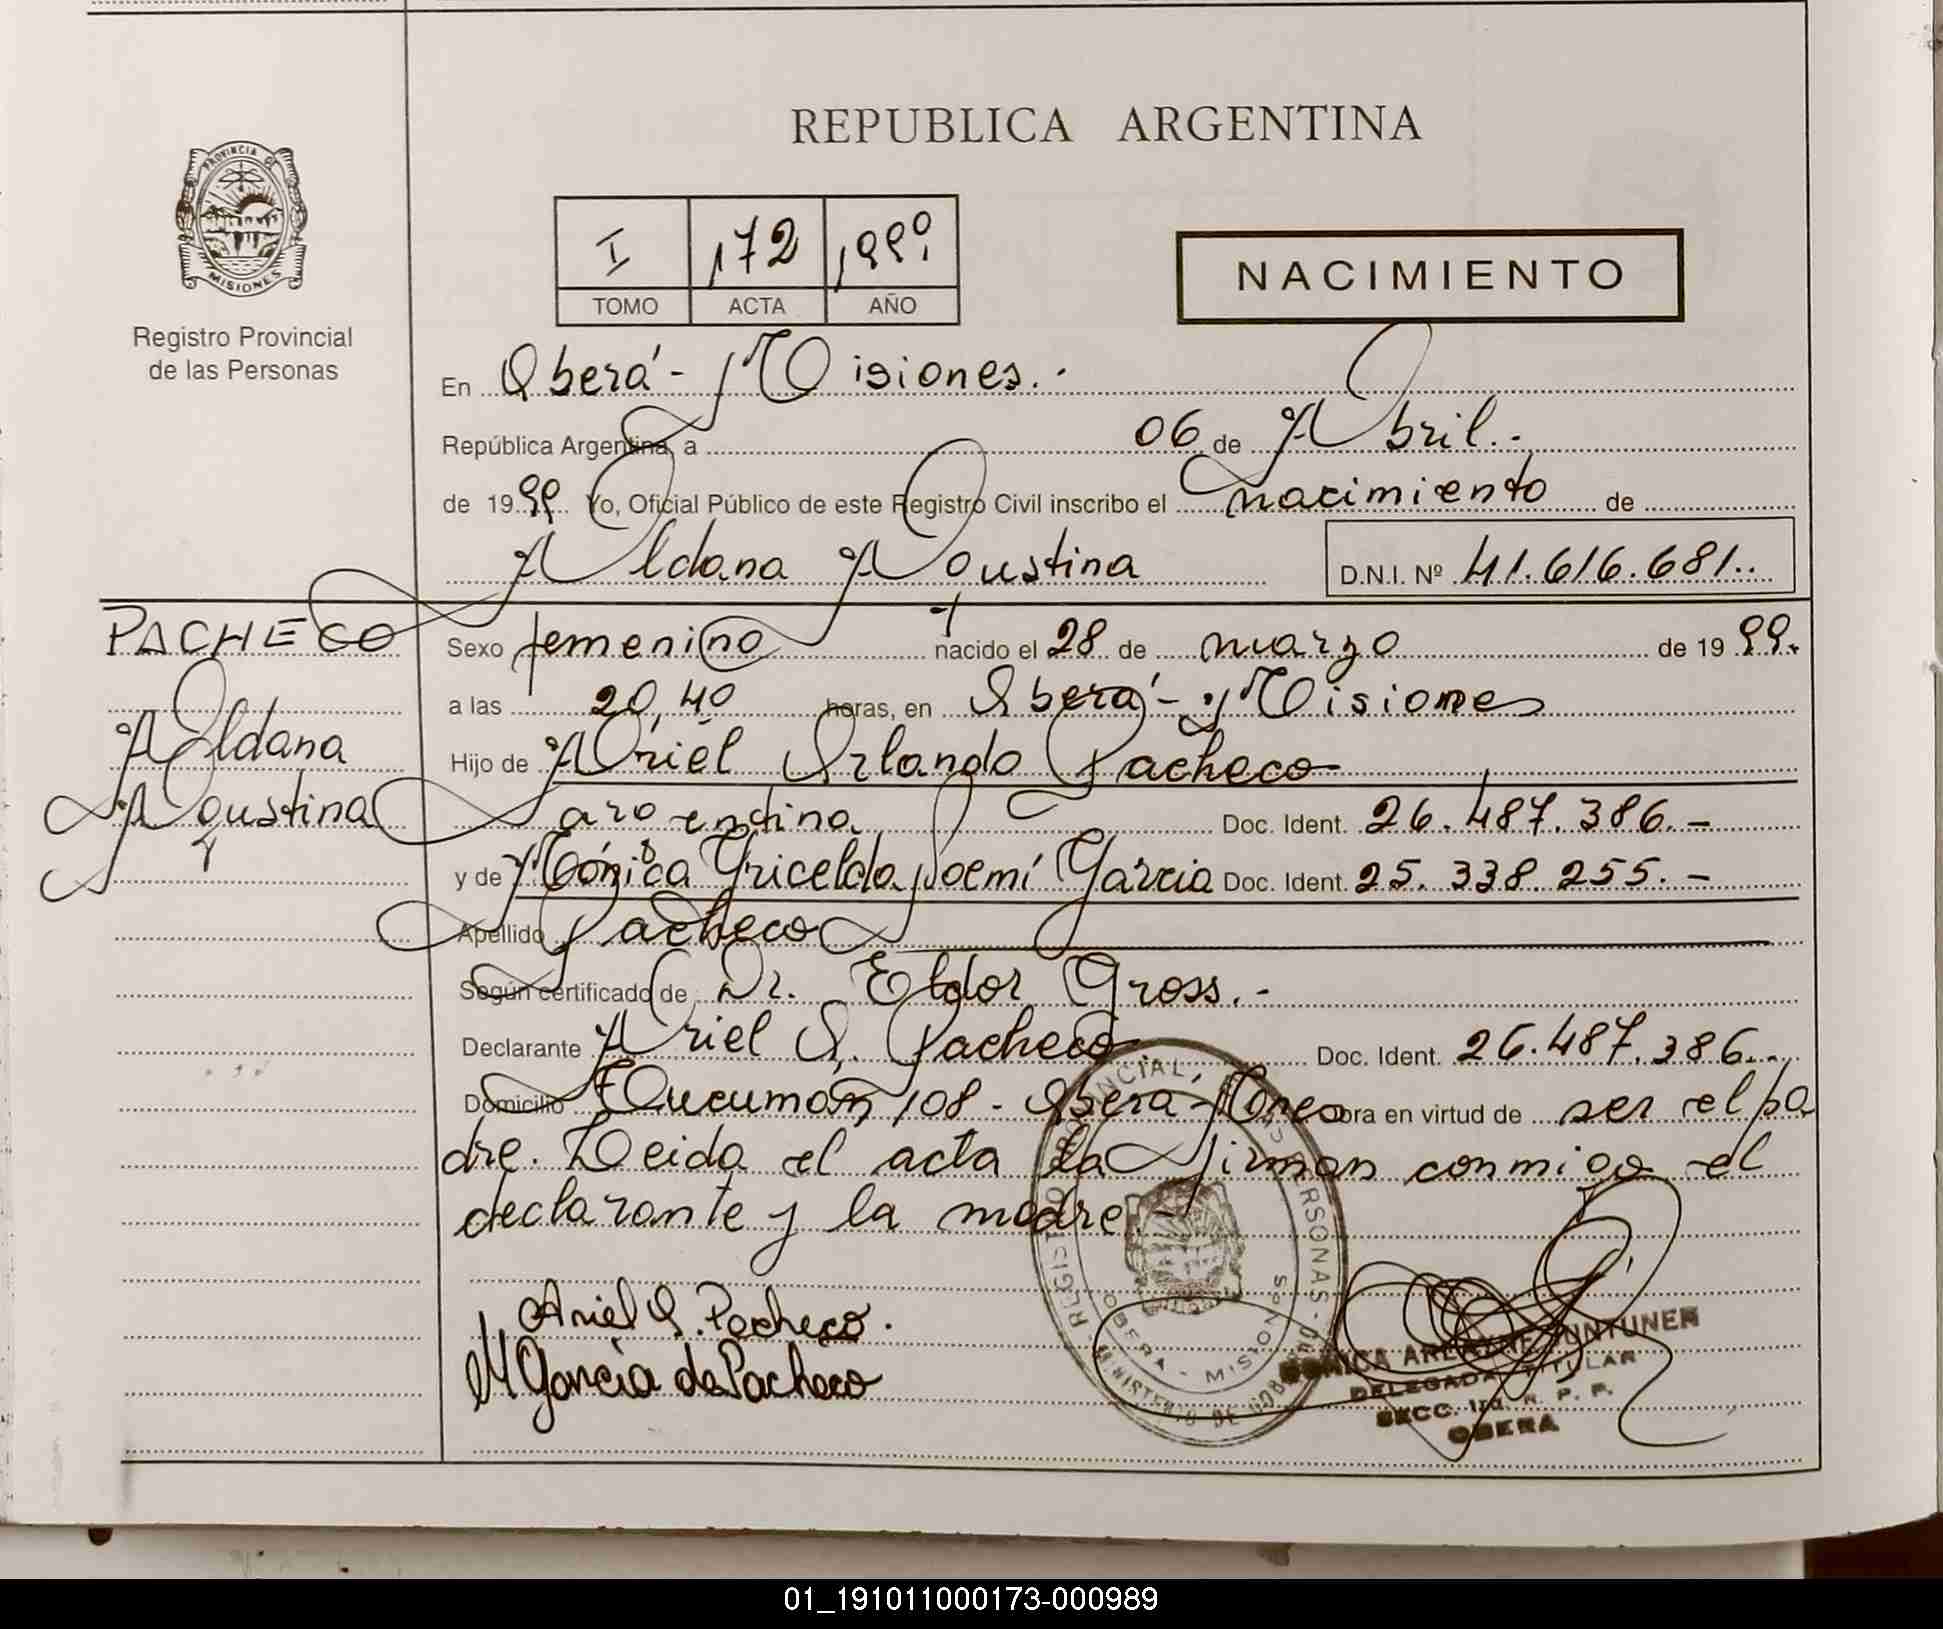 REPUBLICA ARGENTINA
PROVINCIA DE
MISIONES
Registro Provincial
de las Personas
I 172 1999
TOMO ACTA AÑO
NACIMIENTO
En Oberá - Misiones.-
República Argentina, a 06 de Abril.-
de 1999 Yo, Oficial Público de este Registro Civil inscribo el nacimiento de
Aldana Agustina D.N.I. Nº 41.616.681..
PACHECO
Aldana
Agustina
Sexo femenino nacido el 28 de marzo de 1999.
a las 20,40 horas, en Oberá - Misiones
Hijo de Ariel Orlando Pacheco
argentina Doc. Ident. 26.487.386.-
y de Mónica Griselda Noemí García Doc. Ident. 25.338.255.-
Apellido Pacheco
Según certificado de Dr. Eldor Gross.-
Declarante Ariel O. Pacheco Doc. Ident. 26.487.386..
Domicilio Tucumán 108 - Oberá - Mnes obra en virtud de ser el pa
dre. Leida el acta la firman conmigo el
declarante y la madre.-
Ariel O. Pacheco.
M García de Pacheco
REGISTRO PROVINCIAL PERSONAS
MINISTERIO DE
OBERA - MISIONES
DELEGADA TITULAR
SECC. 1ra. R. P. P.
OBERA
01_191011000173-000989